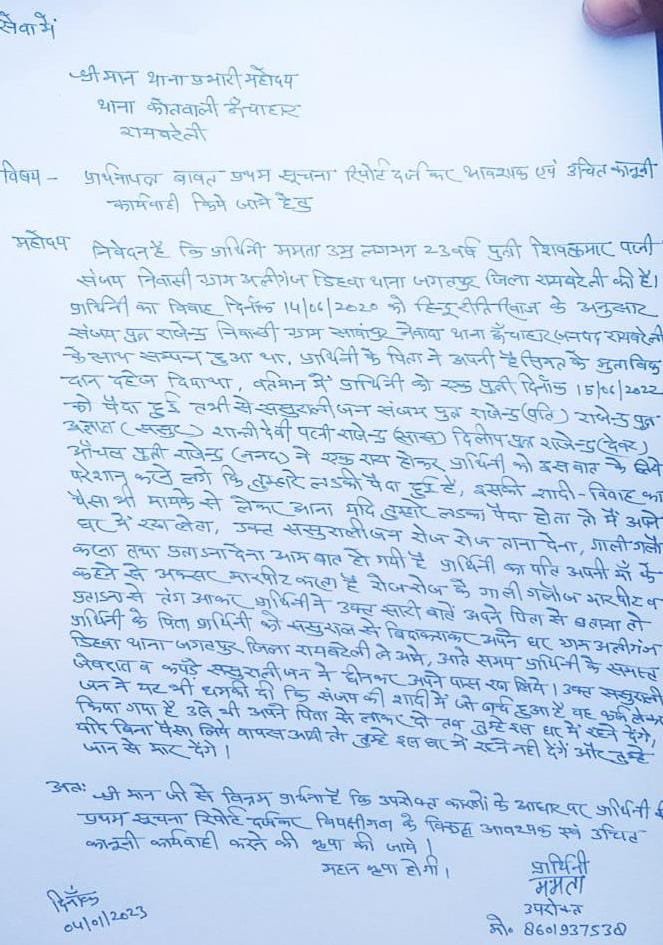 सेवा में
श्रीमान थाना प्रभारी महोदय
थाना कोतवाली ऊँचाहार
रायबरेली
विषय - प्रार्थनापत्र बावत प्रथम सूचना रिपोर्ट दर्ज कर आवश्यक एवं उचित कानूनी
कार्यवाही किये जाने हेतु
महोदय निवेदन है कि प्रार्थिनी ममता उम्र लगभग 23 वर्ष पुत्री शिवकुमार पत्नी
संजय निवासी ग्राम अलीगंज डिहवा थाना जगतपुर जिला रायबरेली की है।
प्रार्थिनी का विवाह दिनाँक 14/06/2020 को हिन्दू रीति रिवाज के अनुसार
संजय पुत्र राजेन्द्र निवासी ग्राम सावापुर नेवादा थाना ऊँचाहार जनपद रायबरेली
के साथ सम्पन्न हुआ था, प्रार्थिनी के पिता ने अपनी हैसियत के मुताबिक
दान दहेज दिया था, वर्तमान में प्रार्थिनी को एक पुत्री दिनाँक 15/06/2022
को पैदा हुई तभी से ससुरालीजन संजय पुत्र राजेन्द्र (पति) राजेन्द्र पुत्र
अज्ञात (ससुर) शान्ती देवी पत्नी राजेन्द्र (सास) दिलीप पुत्र राजेन्द्र (देवर)
आँचल पुत्री राजेन्द्र (ननद) ने एक राय होकर प्रार्थिनी को इस बात के लिये
परेशान करने लगे कि तुम्हारे लडकी पैदा हुई है, इसकी शादी-विवाह का
पैसा भी मायके से लेकर आना यदि तुम्हारे लडका पैदा होता तो मैं अपने
घर में रख लेता, उक्त ससुरालीजन रोज रोज ताना देना, गाली गलौज
करना तथा प्रताडना देना आम बात हो गयी है प्रार्थिनी का पति अपनी माँ के
कहने से अक्सर मारपीट करता है रोज रोज के गाली गलौज मारपीट व
प्रताडना से तंग आकर प्रार्थिनी ने उक्त सारी बातें अपने पिता से बताया तो
प्रार्थिनी के पिता प्रार्थिनी को ससुराल से विदा कराकर अपने घर ग्राम अलीगंज
डिहवा थाना जगतपुर जिला रायबरेली ले आये, आते समय प्रार्थिनी के समस्त
जेवरात व कपडे ससुरालीजन ने छीनकर अपने पास रख लिये। उक्त ससुराली
जन ने यह भी धमकी दी कि संजय की शादी में जो खर्च हुआ है वह कर्ज लेकर
किया गया है उसे भी अपने पिता से लाकर दो तब तुम्हे इस घर में रहने देंगे,
यदि बिना पैसा लिये वापस आयी तो तुम्हे इस घर में रहने नहीं देंगे और तुम्हे
जान से मार देंगे।
अतः श्रीमान जी से विनम्र प्रार्थना है कि उपरोक्त कारणों के आधार पर प्रार्थिनी की
प्रथम सूचना रिपोर्ट दर्जकर विपक्षीगण के विरूद्ध आवश्यक एवं उचित
कानूनी कार्यवाही करने की कृपा की जाये।
महान कृपा होगी।
प्रार्थिनी
ममता
उपरोक्त
मो० 8601937538
दिनाँक
04/01/2023